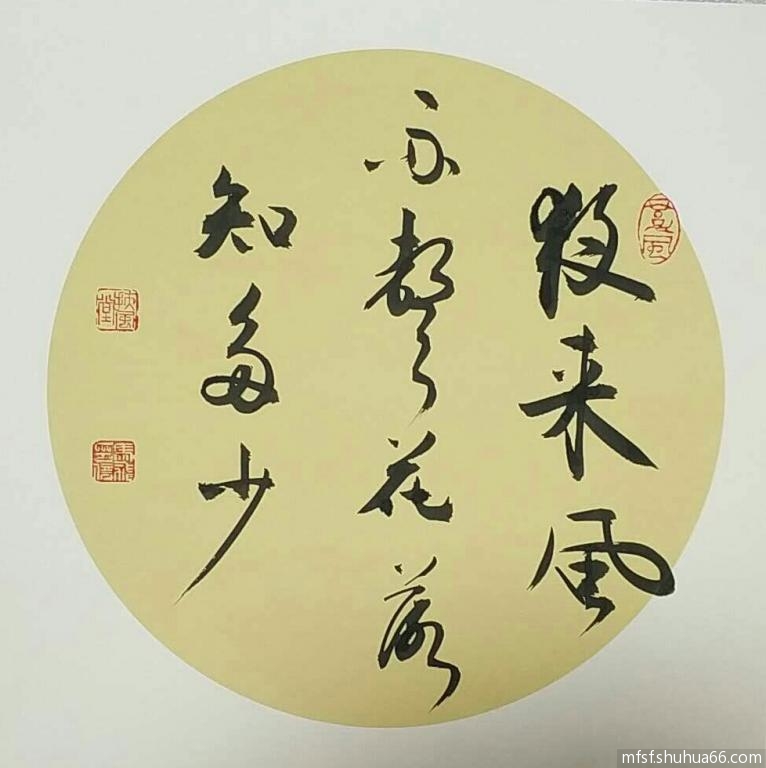 夜来風
雨聲花落
知多少
扶風堂
mfsf.shuhua66.com